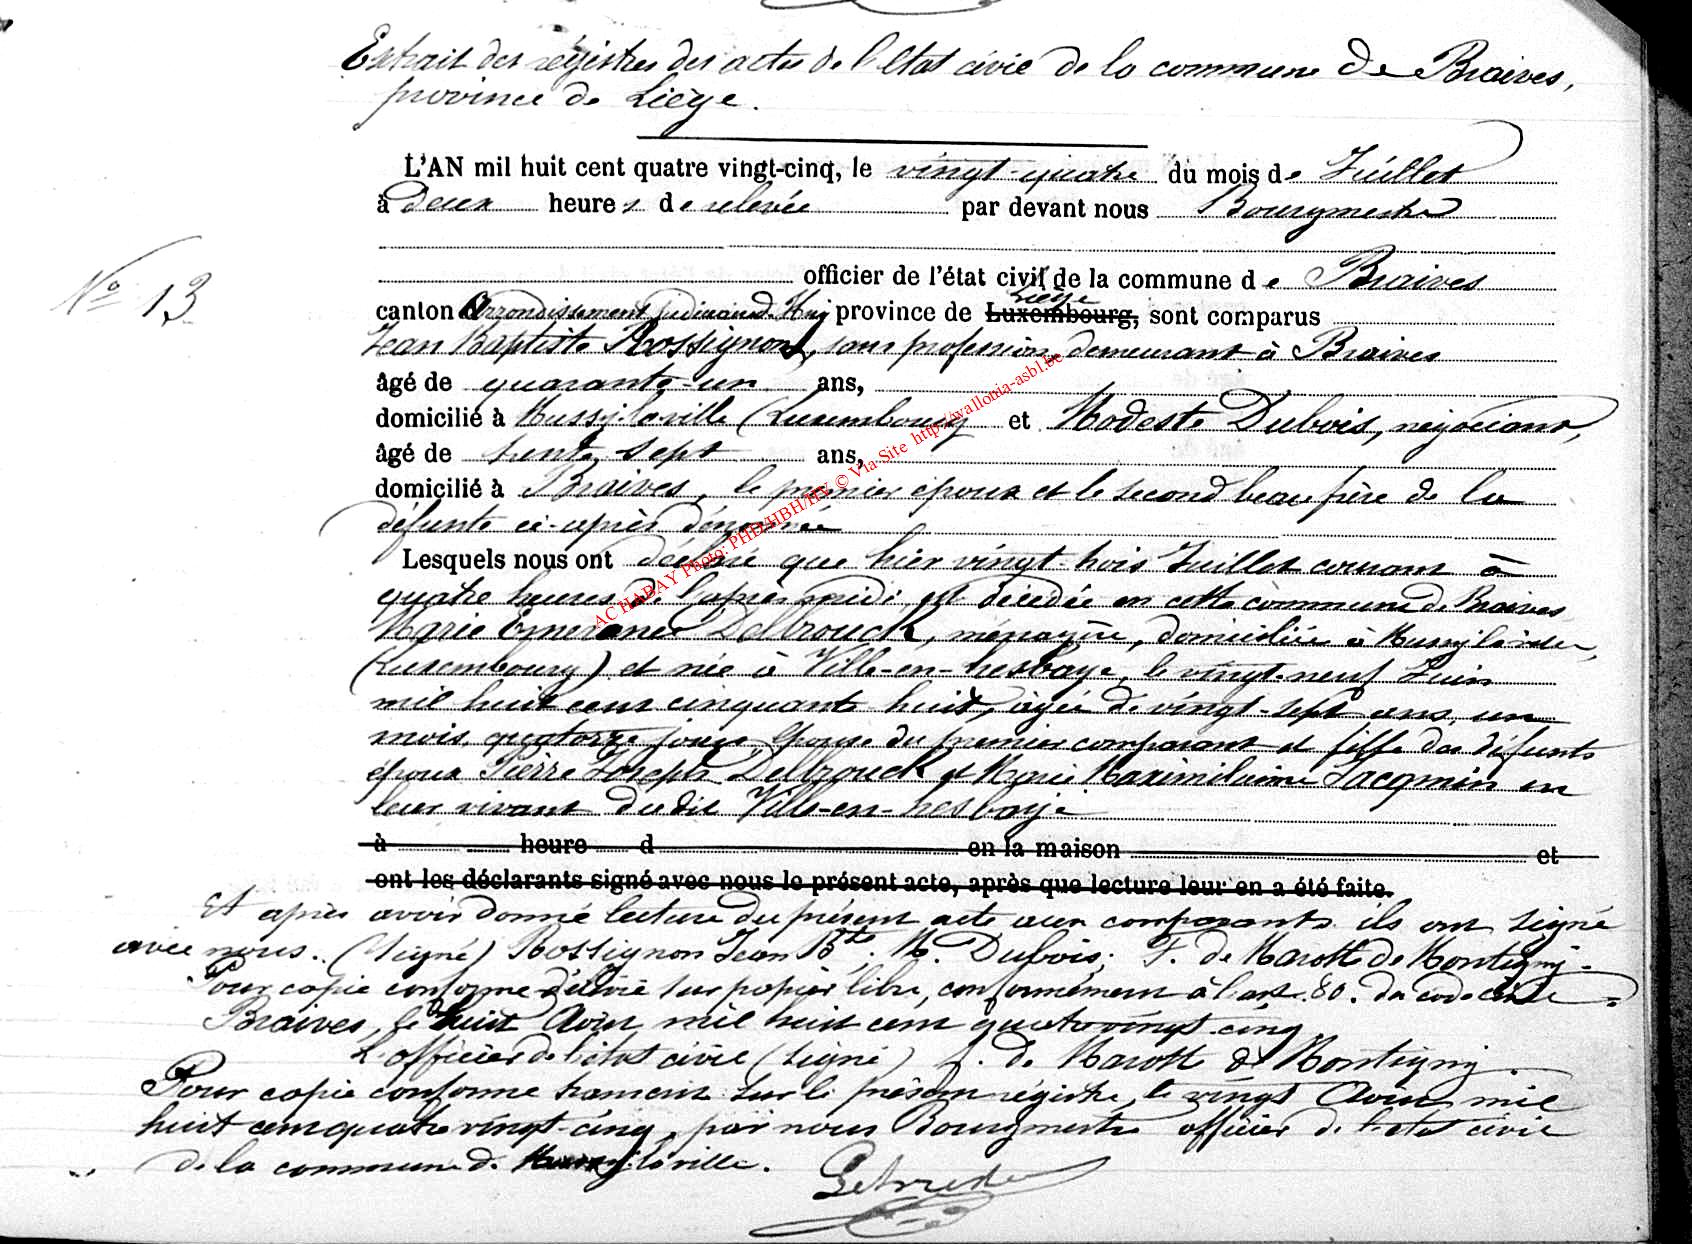 Extrait des régistres des actes de l'Etat civil de la commune de Braives,
province de Liège.
L'AN mil huit cent quatre vingt-cinq, le vingt-quatre du mois de Juillet
à deux heures de relevée par devant nous Bourgmestre
officier de l'état civil de la commune de Braives
N° 13
canton Arrondissement judiciaire de Huy province de Liège Luxembourg, sont comparus
Jean Baptiste Rossignon, sans profession, demeurant à Braives
âgé de quarante-un ans,
domicilié à Mussy-la-ville (Luxembourg et Modeste Dubois, négociant,
âgé de trente sept ans,
domicilié à Braives, le premier époux et le second beau frère de la
défunte ci-après dénommée
Lesquels nous ont déclaré que hier vingt-trois Juillet courant à
quatre heures de l'après midi, est décédée en cette commune de Braives
Marie Emerance Delbrouck, ménagère, domiciliée à Mussy la ville,
(Luxembourg) et née à Ville-en-hesbaye, le vingt-neuf Juin
mil huit cent cinquante huit, âgée de vingt-sept ans, un
mois, quatorze jours, Epouse du premier comparant et fille des défunts
époux Pierre Joseph Delbrouck et Marie Maximilienne Jacqmin en
leur vivant dudit Ville-en-hesbaye
à heure d en la maison et
ont les déclarants signé avec nous le présent acte, après que lecture leur en a été faite.
Et après avoir donné lecture du présent acte aux comparants ils ont signé
avec nous. (Signé) Rossignon Jean Bte. M. Dubois; F. de Marotte de Montigny.
Pour copie conforme délivré sur papier libre, conformément à l'art. 80. du code civil
Braives, le huit Août mil huit cent quatre vingt-cinq
L'officier de l'état civil (signé) f. de Marotte de Montigny.
Pour copie conforme transcrit sur le présent régistre, le vingt Août mil
huit cent quatre vingt-cinq, par nous Bourgmestre officier de l'état civil
de la commune de Mussy-la-ville.
ACHABAY Photo: PHD/HBH/HV © Via Site http://wallonia-asbl.be